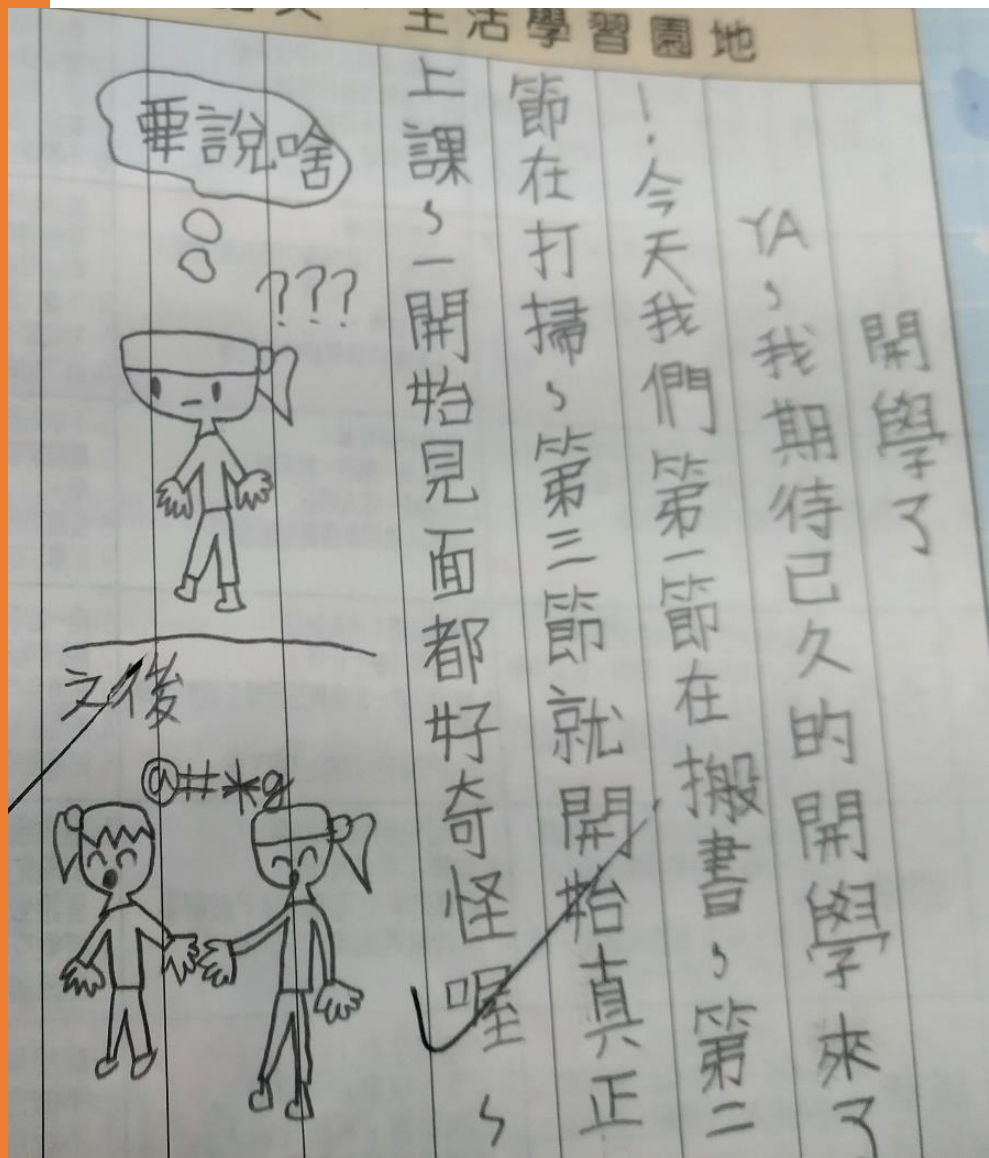 生活學習園地
開學了
YA~我期待已久的開學來了
!今天我們第一節在搬書~第二
節在打掃~第三節就開始真正
上課~一開始見面都好奇怪喔~
要說啥
???
之後
@#*&